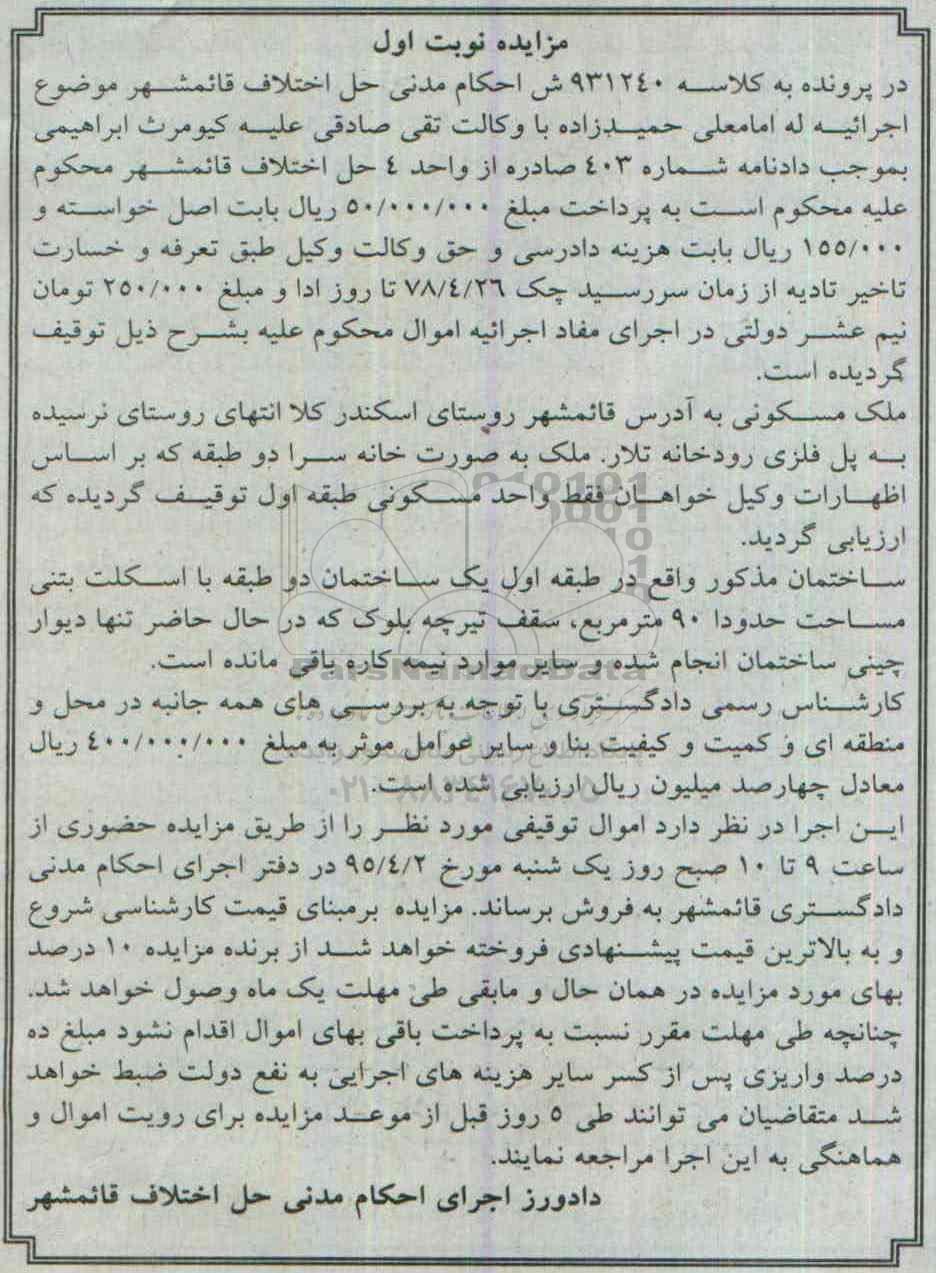 مزایده نوبت اول
در پرونده به کلاسه ۹۳۱۲٤۰ ش احکام مدنی حل اختلاف قائمشهر موضوع
اجرائیه له امامعلی حمیدزاده با وکالت تقی صادقی علیه کیومرث ابراهیمی
بموجب دادنامه شماره ٤۰۳ صادره از واحد ٤ حل اختلاف قائمشهر محکوم
علیه محکوم است به پرداخت مبلغ ۵۰/۰۰۰/۰۰۰ ریال بابت اصل خواسته و
۱۵۵/۰۰۰ ریال بابت هزینه دادرسی و حق وکالت وکیل طبق تعرفه و خسارت
تاخیر تادیه از زمان سررسید چک ۷۸/٤/۲٦ تا روز ادا و مبلغ ۲۵۰/۰۰۰ تومان
نیم عشر دولتی در اجرای مفاد اجرائیه اموال محکوم علیه بشرح ذیل توقیف
گردیده است.
ملک مسکونی به آدرس قائمشهر روستای اسکندر کلا انتهای روستای نرسیده
به پل فلزی رودخانه تلار. ملک به صورت خانه سرا دو طبقه که بر اساس
اظهارات وکیل خواهان فقط واحد مسکونی طبقه اول توقیف گردیده که
ارزیابی گردید.
ساختمان مذکور واقع در طبقه اول یک ساختمان دو طبقه با اسکلت بتنی
مساحت حدودا ۹۰ مترمربع، سقف تیرچه بلوک که در حال حاضر تنها دیوار
چینی ساختمان انجام شده و سایر موارد نیمه کاره باقی مانده است.
ParsNamadData
کارشناس رسمی دادگستری با توجه به بررسی های همه جانبه در محل و
منطقه ای و کمیت و کیفیت بنا و سایر عوامل موثر به مبلغ ٤۰۰/۰۰۰/۰۰۰ ریال
معادل چهارصد میلیون ریال ارزیابی شده است.
این اجرا در نظر دارد اموال توقیفی مورد نظر را از طریق مزایده حضوری از
ساعت ۹ تا ۱۰ صبح روز یک شنبه مورخ ۹۵/٤/۲ در دفتر اجرای احکام مدنی
دادگستری قائمشهر به فروش برساند. مزایده برمبنای قیمت کارشناسی شروع
و به بالاترین قیمت پیشنهادی فروخته خواهد شد از برنده مزایده ۱۰ درصد
بهای مورد مزایده در همان حال و مابقی طی مهلت یک ماه وصول خواهد شد.
چنانچه طی مهلت مقرر نسبت به پرداخت باقی بهای اموال اقدام نشود مبلغ ده
درصد واریزی پس از کسر سایر هزینه های اجرایی به نفع دولت ضبط خواهد
شد متقاضیان می توانند طی ۵ روز قبل از موعد مزایده برای رویت اموال و
هماهنگی به این اجرا مراجعه نمایند.
دادورز اجرای احکام مدنی حل اختلاف قائمشهر